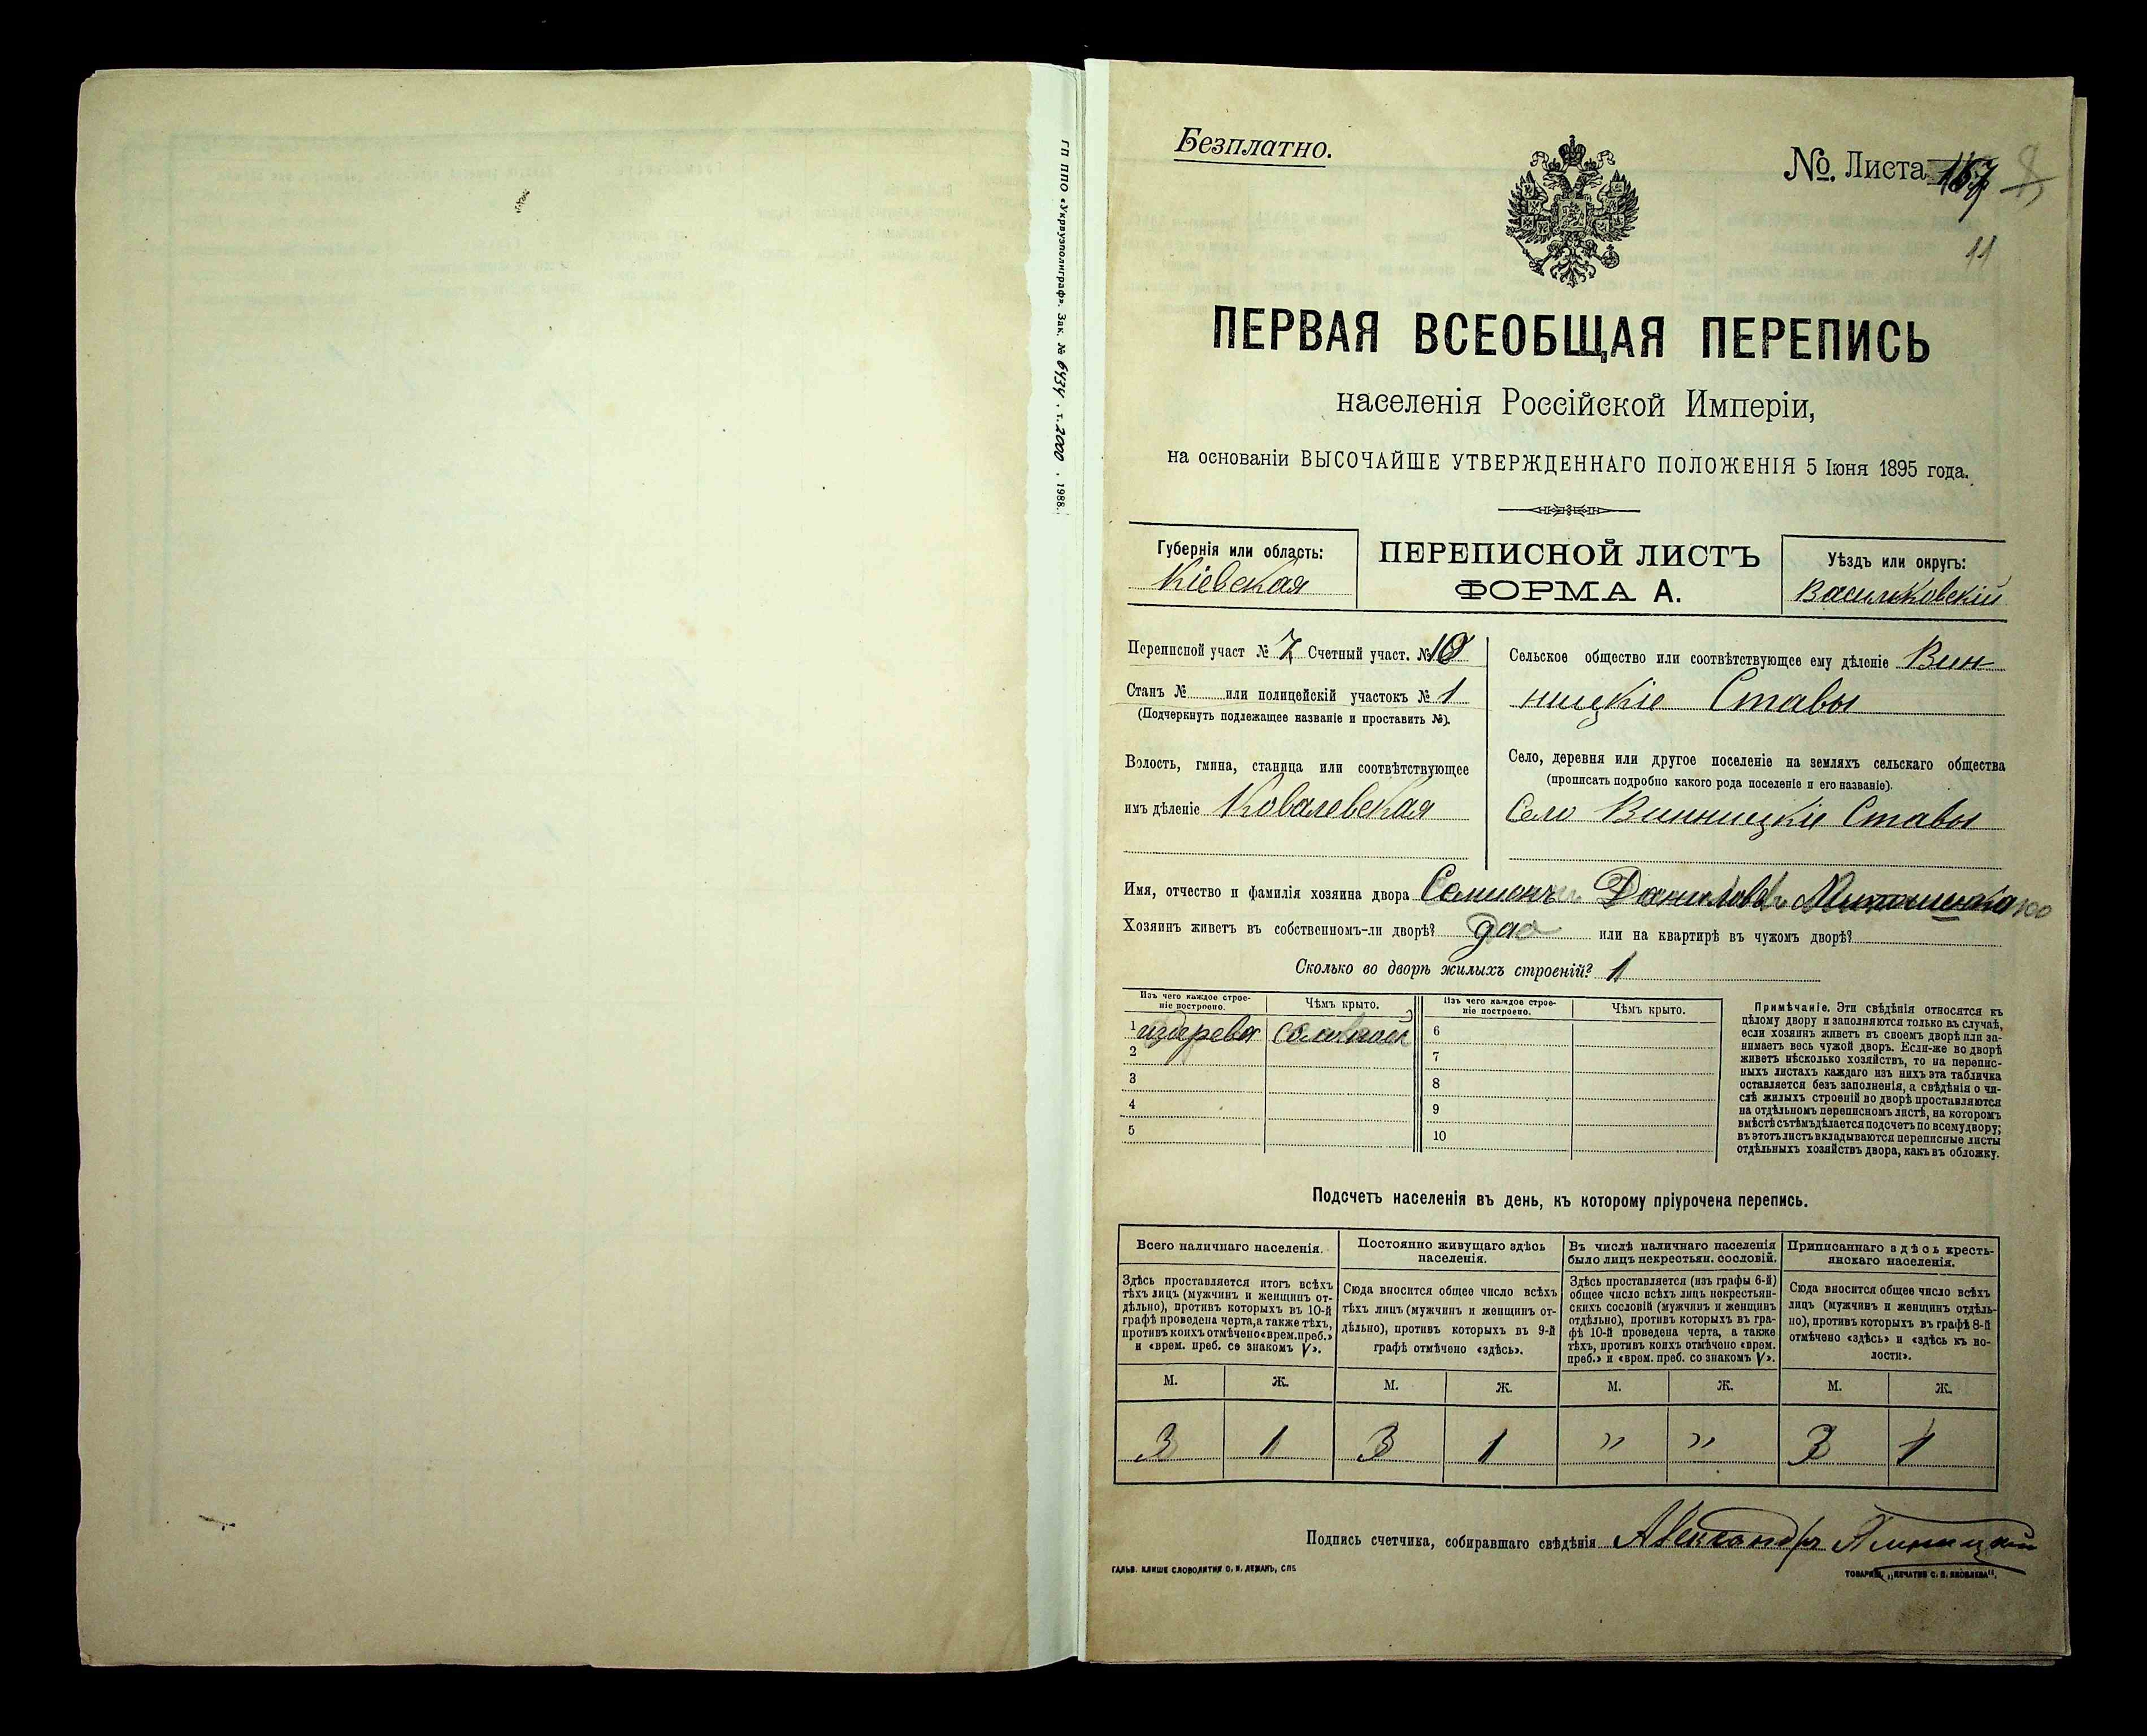 ГП ППО «Укрвузполиграф». Зак. № 6434. т. 2000. 1988.
Безплатно.
№. Листа
11
ПЕРВАЯ ВСЕОБЩАЯ ПЕРЕПИСЬ
населенія Россійской Имперіи,
на основаніи ВЫСОЧАЙШЕ УТВЕРЖДЕННАГО ПОЛОЖЕНІЯ 5 Іюня 1895 года.
Губернія или область:
Кіевская
ПЕРЕПИСНОЙ ЛИСТЪ
ФОРМА А.
Уѣздъ или округъ:
Васильковскій
Переписной участ № 7 Счетный участ. № 10
Станъ № или полицейскій участокъ № 1
(Подчеркнуть подлежащее названіе и проставить №).
Волость, гмина, станица или соотвѣтствующее
имъ дѣленіе Ковалевская
Сельское общество или соотвѣтствующее ему дѣленіе Вин-
ницкіе Ставы
Село, деревня или другое поселеніе на земляхъ сельскаго общества
(прописать подробно какого рода поселеніе и его названіе).
Село Винницкіе Ставы
Имя, отчество и фамилія хозяина двора Семенъ Даниловъ
Хозяинъ живетъ въ собственномъ-ли дворѣ? да или на квартирѣ въ чужомъ дворѣ?
Сколько во дворѣ жилыхъ строеній? 1
Изъ чего каждое строе-
ніе построено.
Чѣмъ крыто.
Изъ чего каждое строе-
ніе построено.
Чѣмъ крыто.
1 издерева соломой
2
3
4
5
6
7
8
9
10
Примѣчаніе. Эти свѣдѣнія относятся къ
цѣлому двору и заполняются только въ случаѣ,
если хозяинъ живетъ въ своемъ дворѣ или за-
нимаетъ весь чужой дворъ. Если-же во дворѣ
живетъ нѣсколько хозяйствъ, то на перепис-
ныхъ листахъ каждаго изъ нихъ эта табличка
оставляется безъ заполненія, а свѣдѣнія о чи-
слѣ жилыхъ строеній во дворѣ проставляются
на отдѣльномъ переписномъ листѣ, на которомъ
вмѣстѣ съ тѣмъ дѣлается подсчетъ по всему двору;
въ этотъ листъ вкладываются переписные листы
отдѣльныхъ хозяйствъ двора, какъ въ обложку.
Подсчетъ населенія въ день, къ которому пріурочена перепись.
Всего наличнаго населенія.
Здѣсь проставляется итогъ всѣхъ
тѣхъ лицъ (мужчинъ и женщинъ от-
дѣльно), противъ которыхъ въ 10-й
графѣ проведена черта, а также тѣхъ,
противъ коихъ отмѣчено «врем. преб.»
и «врем. преб. со знакомъ V».
Постоянно живущаго здѣсь
населенія.
Сюда вносится общее число всѣхъ
тѣхъ лицъ (мужчинъ и женщинъ от-
дѣльно), противъ которыхъ въ 9-й
графѣ отмѣчено «здѣсь».
Въ числѣ наличнаго населенія
было лицъ некрестьян. сословій.
Здѣсь проставляется (изъ графы 6-й)
общее число всѣхъ лицъ некрестьян-
скихъ сословій (мужчинъ и женщинъ
отдѣльно), противъ которыхъ въ гра-
фѣ 10-й проведена черта, а также
тѣхъ, противъ коихъ отмѣчено «врем.
преб.» и «врем. преб. со знакомъ V».
Приписаннаго здѣсь кресть-
янскаго населенія.
Сюда вносится общее число всѣхъ
лицъ (мужчинъ и женщинъ отдѣль-
но), противъ которыхъ въ графѣ 8-й
отмѣчено «здѣсь» и «здѣсь къ во-
лости».
М. Ж. М. Ж. М. Ж. М. Ж.
3 1 3 1 " " 3 1
Подпись счетчика, собиравшаго свѣдѣнія Александръ
ГАЛЬВ. КЛИШЕ СЛОВОЛИТНИ О. И. ЛЕМАНЪ, СПБ
ТОВАРИЩ. „ПЕЧАТНЯ С. П. ЯКОВЛЕВА".